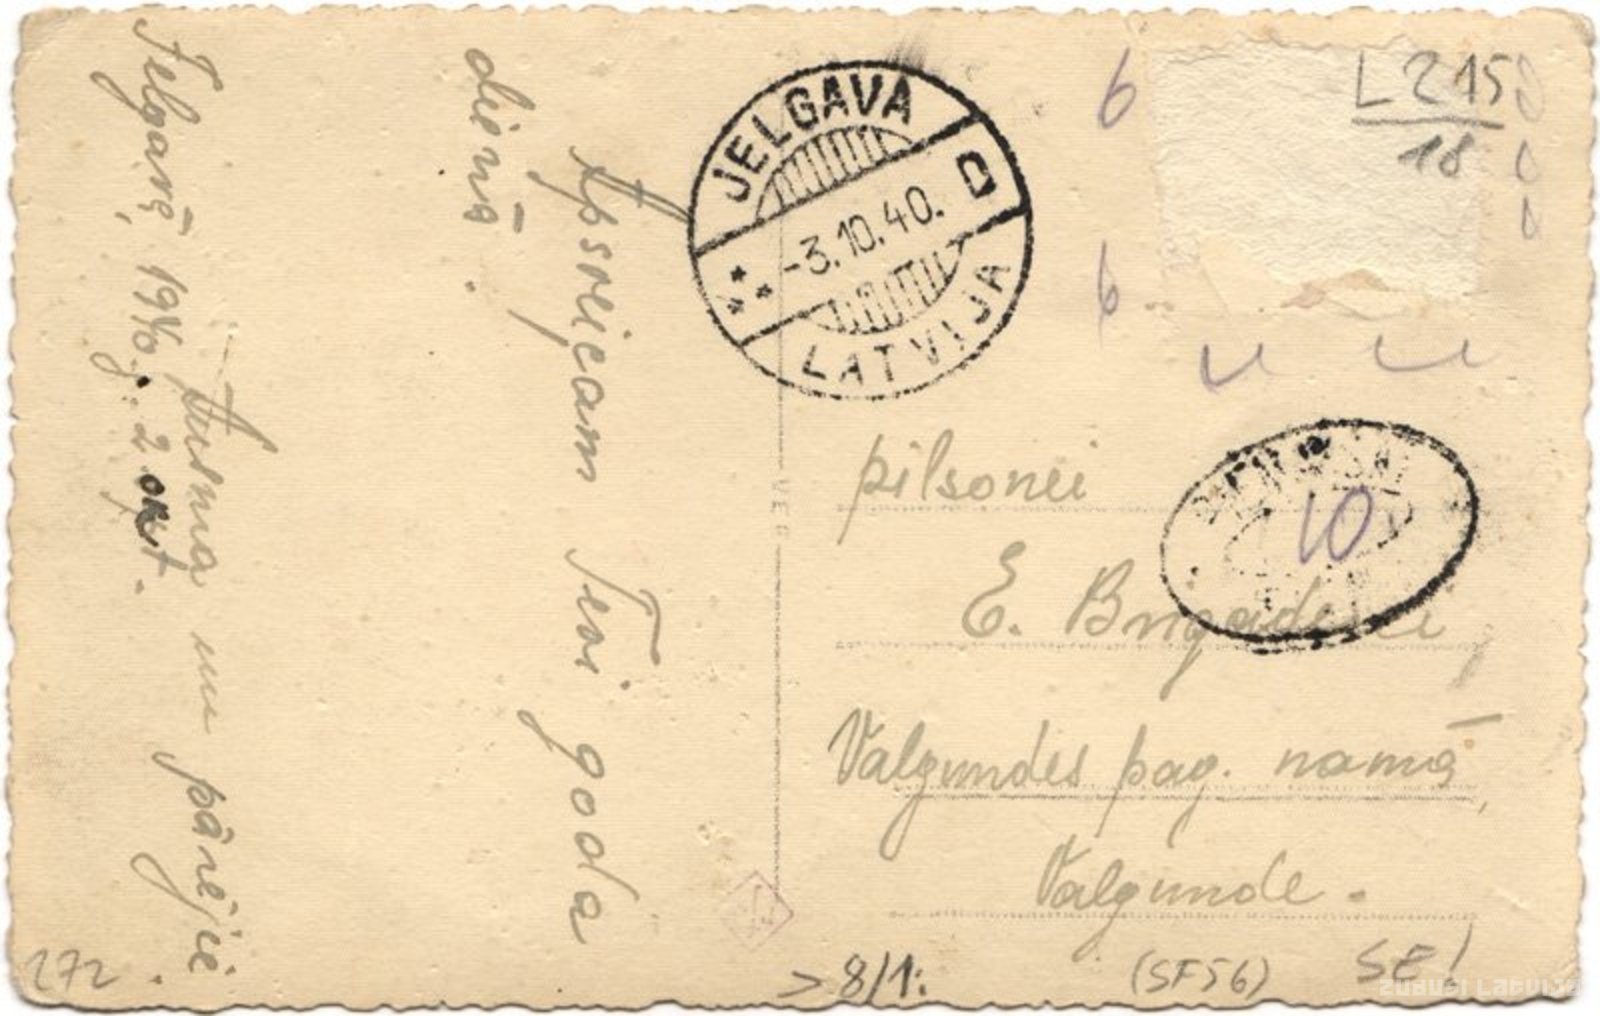 Apsveicam Tevi goda
dienā.
Ausma un pārējie
Jelgavā, 1940.g. 2 okt.
JELGAVA
-3.10.40.
D
LATVIJA
L 215
18
6
6
10
pilsonei
E. Brigaderei
Valgundes pag. namā,
Valgunde.
272.
> 8/1:
(SF56)
SE!
ZUDUSI LATVIJA